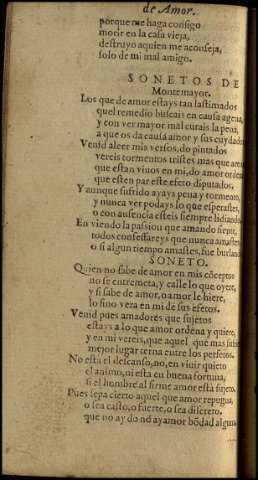 de Amor.
porque me haga consigo
morir en la casa vieja,
destruyo aquien me aconseja,
solo de mi mal amigo.
SONETOS DE
Montemayor.
Los que de amor estays tan lastimados
quel remedio buscais en causa agena,
y con ver mayor mal curais la pena,
a que os da causa amor y sus cuydados
Venid aleer mis versos, do pintados
vereis tormentos tristes mas que arena
que estan viuos en mi, do amor ordena
que esten par este efeto diputados,
Y aunque sufrido ayays pena y tormento,
y nunca ver podays lo que esperastes,
o con ausencia esteis siempre lidiando
En viendo la passion que amando siento,
todos confessareys que nunca amastes,
o si algun tiempo amastes, fue burlando
SONETO.
Quien no sabe de amor en mis cõceptos
no se entremeta, y calle lo que oyere,
y si sabe de amor, o amor le hiere,
lo fino vera en mi de sus efetos.
Venid pues amadores que sujetos
estays a lo que amor ordena y quiere,
y en mi vereis, que aquel que mas sufre
mejor lugar terna entre los perfetos.
No esta el descanso, no, en viuir quieto
el animo, ni esta en buena fortuna,
si el humbre al firme amor està sujeto.
Pues sepa cierto aquel que amor repugna,
o sea casto, o fuerte, o sea discreto,
que no ay do no ay amor bõdad alguna